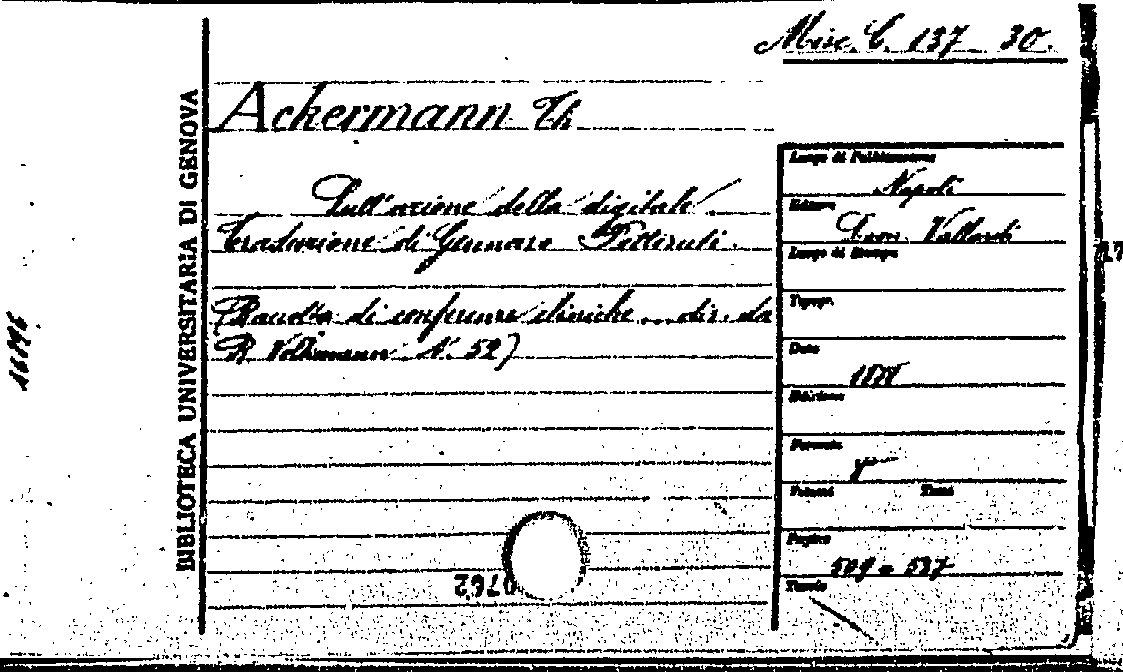 Misc. C. 137 30.
Ackermann Th
Sull'azione della digitale.
Traduzione di Gennaro Petteruti.
(Raccolta di conferenze cliniche... dir. da
R. Volkmann N. 52)
BIBLIOTECA UNIVERSITARIA DI GENOVA
Luogo di Pubblicazione
Napoli
Editore
Leon. Vallardi
Luogo di Stampa
Tipogr.
Data
Edizione
Formato
Volumi Tomi
Pagine
Tavole